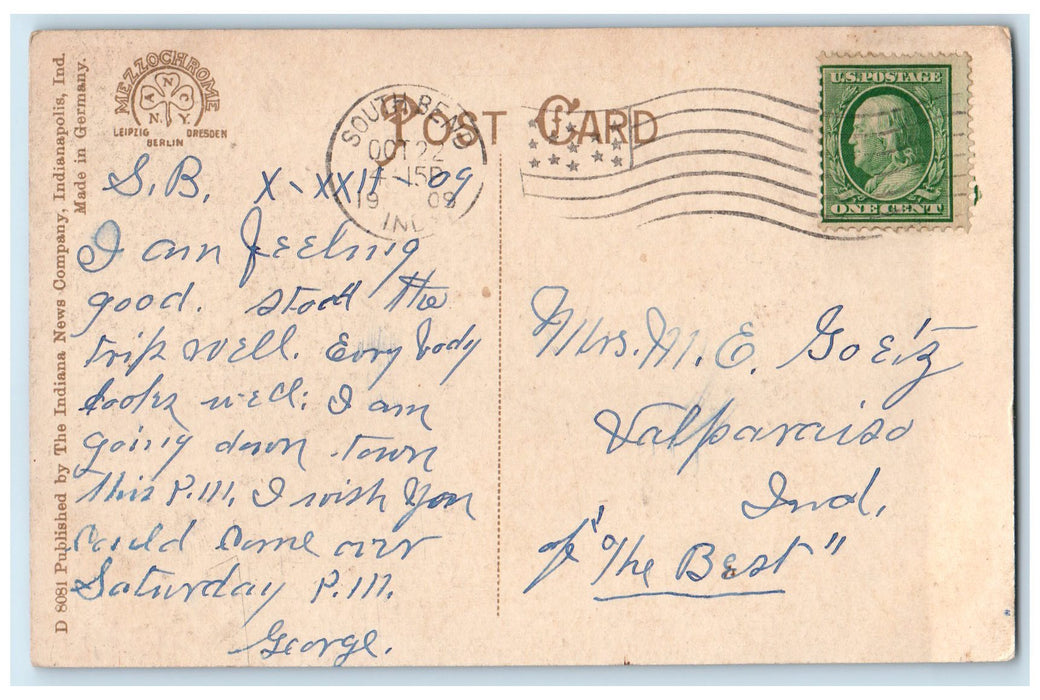 MEZZOCHROME
A N C
N. Y.
LEIPZIG DRESDEN
BERLIN
POST CARD
SOUTH BEND
OCT 22
4-15P
1909
IND.
U.S. POSTAGE
ONE CENT
D 8081 Published by The Indiana News Company, Indianapolis, Ind.
Made in Germany.
S.B. X-XXII-09
I am feeling
good. stood the
trip well. Evry body
looks well: I am
going down town
this P.M. I wish you
could come over
Saturday P.M.
George.
Mrs. M. E. Goetz
Valparaiso
Ind.
"The Best"